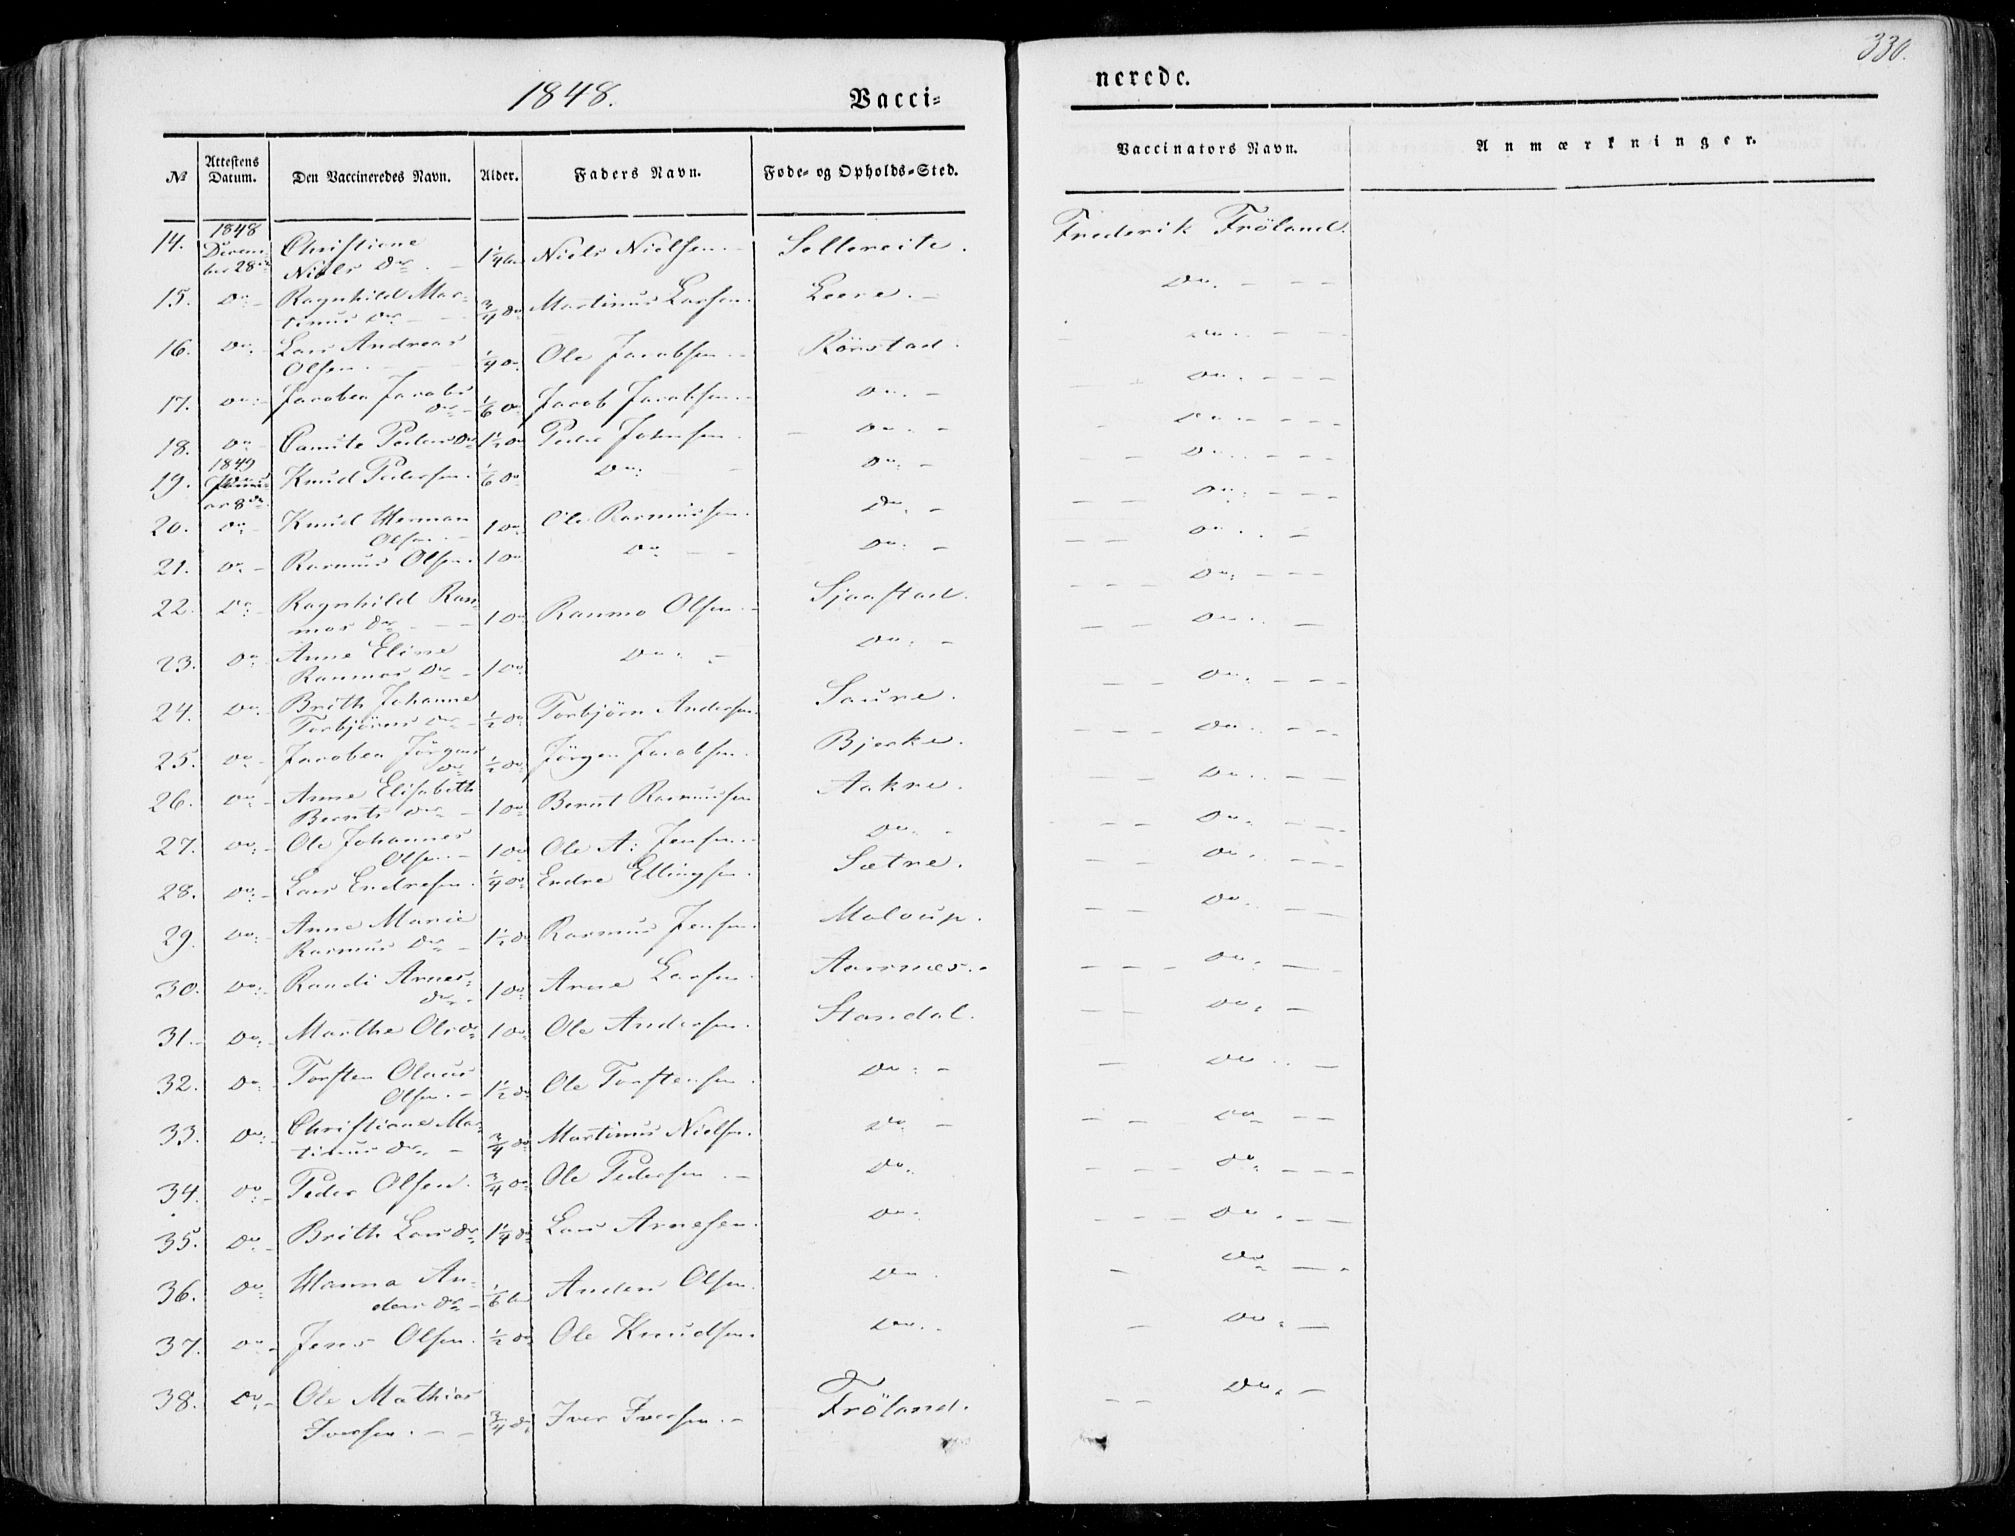 330.
1848.
Vacci=
nerede.
№
Attestens Datum.
Den Vaccineredes Navn.
Alder.
Faders Navn.
Føde= og Opholds=Sted.
Vaccinators Navn.
Anmærkninger.
14. 1848 Decem- Christiane 1/4 Niels Nielsen. Frederik Fröland.
ber 28 Niels Dr
15. Do Ragnhild Mar- 3/4 do Martinus Larsen. Leere. Do.
tinus Dr
16. Do. Lars Andreas 1/4 Do. Ole Jacobsen. Rörstad. Do.
Olsen.
17. Do. Jacobea Jacobs 1/6 Do Jacob Jacobsen. Do. Do.
Dr
18. Do Peders Dr 1 1/2 Do Peder Johnsen. Do. Do.
19. 1849 Knud Pedersen. 1/6 Do Do. Do. Do.
Janu-
ar 8de
20. Do Knud Herman 1 Do Ole Rasmussen. Do. Do.
Olsen.
21. Do Rasmus Olsen. 1 Do Do Do. Do.
22. Do Ragnhild Ras- 1 Do Olsen. Sjaastad. Do.
mos Dr
23. Do Anne Eline 1 Do. Do. Do. Do.
Dr
24. Do. Brith Johanne 1/2 Do Torbjörn Andersen. Saure. Do.
Torbjörns Dr
25. Do Jacobea Jörgens 1/2 Do Jörgen Jacobsen. Bjerke. Do.
Dr
26. Do Anne Elisabeth 1 Do. Bernt Rasmussen Aakre. Do.
Bernts Dr
27. Do. Ole Johannes 1 Do Ole A: Jensen. Do. Do.
Olsen.
28. Do. Lars Endresen. 1/4 Do Endre Ellingsen. Sætre. Do.
29. Do. Anne Marie 1 1/2 Do Rasmus Jensen. Do.
Rasmus Dr
30. Do. Randi Arnes- 1 Do. Arne Larsen. Aarsnes. Do.
Dr
31. Do. Marthe Ols Dr 1 Do. Ole Andersen. Standal. Do.
32. Do. Torsten Olaus 1 1/2 Do Ole Torstensen. Do. Do
Olsen.
33. Do. Christiane Mar- 3/4 Do Martinus Nielsen. Do. Do
tinus Dr
34. Do. Peder Olsen. 3/4 Do Ole Pedersen. Do. Do
35. Do. Brith Lars Dr 1 1/4 Do Lars Arnesen. Do. Do.
36. Do. Hanna An- 1/6 Do Anders Olsen. Do. Do
ders Dr
37. Do. Jens Olsen. 1/2 Do Ole Knudsen. Do. Do.
38. Do. Ole Mathias 3/4 Do. Iver Iversen. Fröland. Do.
Iversen.